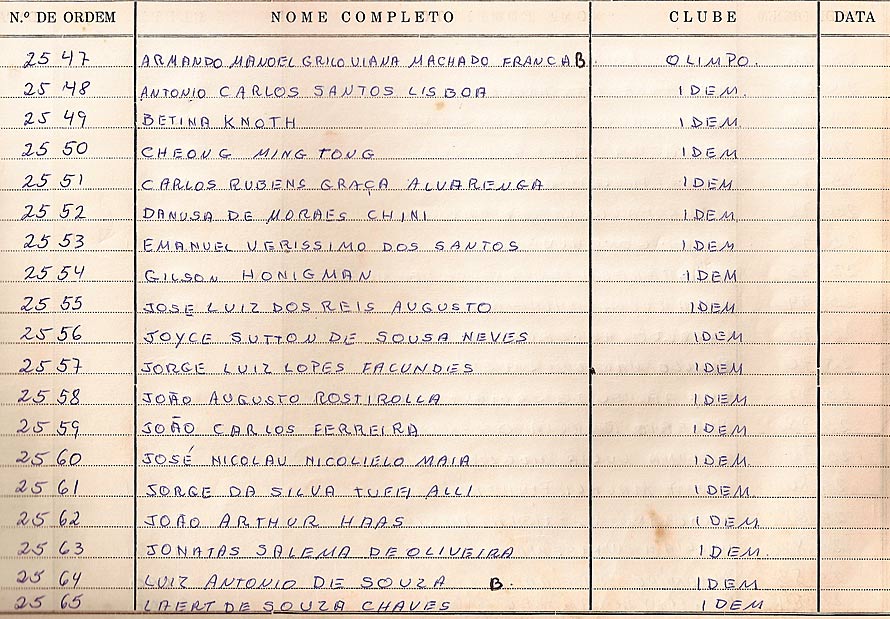 N.º DE ORDEM NOME COMPLETO CLUBE DATA
25 47 ARMANDO MANOEL GRILO VIANA MACHADO FRANCA B OLIMPO.
25 48 ANTONIO CARLOS SANTOS LISBOA IDEM.
25 49 BETINA KNOTH IDEM.
25 50 CHEONG MING TONG IDEM
25 51 CARLOS RUBENS GRAÇA ALVARENGA IDEM
25 52 DANUSA DE MORAES CHINI IDEM
25 53 EMANUEL VERISSIMO DOS SANTOS IDEM
25 54 GILSON HONIGMAN IDEM
25 55 JOSE LUIZ DOS REIS AUGUSTO IDEM
25 56 JOYCE SUTTON DE SOUSA NEVES IDEM
25 57 JORGE LUIZ LOPES FACUNDES IDEM
25 58 JOÃO AUGUSTO ROSTIROLLA IDEM
25 59 JOÃO CARLOS FERREIRA IDEM
25 60 JOSÉ NICOLAU NICOLIELO MAIA IDEM
25 61 JORGE DA SILVA TUFFI ALLI IDEM
25 62 JOÃO ARTHUR HAAS IDEM
25 63 JONATAS SALEMA DE OLIVEIRA IDEM.
25 64 LUIZ ANTONIO DE SOUZA B. IDEM
25 65 LAERT DE SOUZA CHAVES IDEM